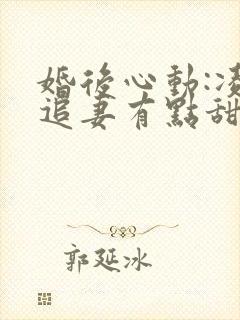 婚後心動:
追妻有點甜
郭延冰